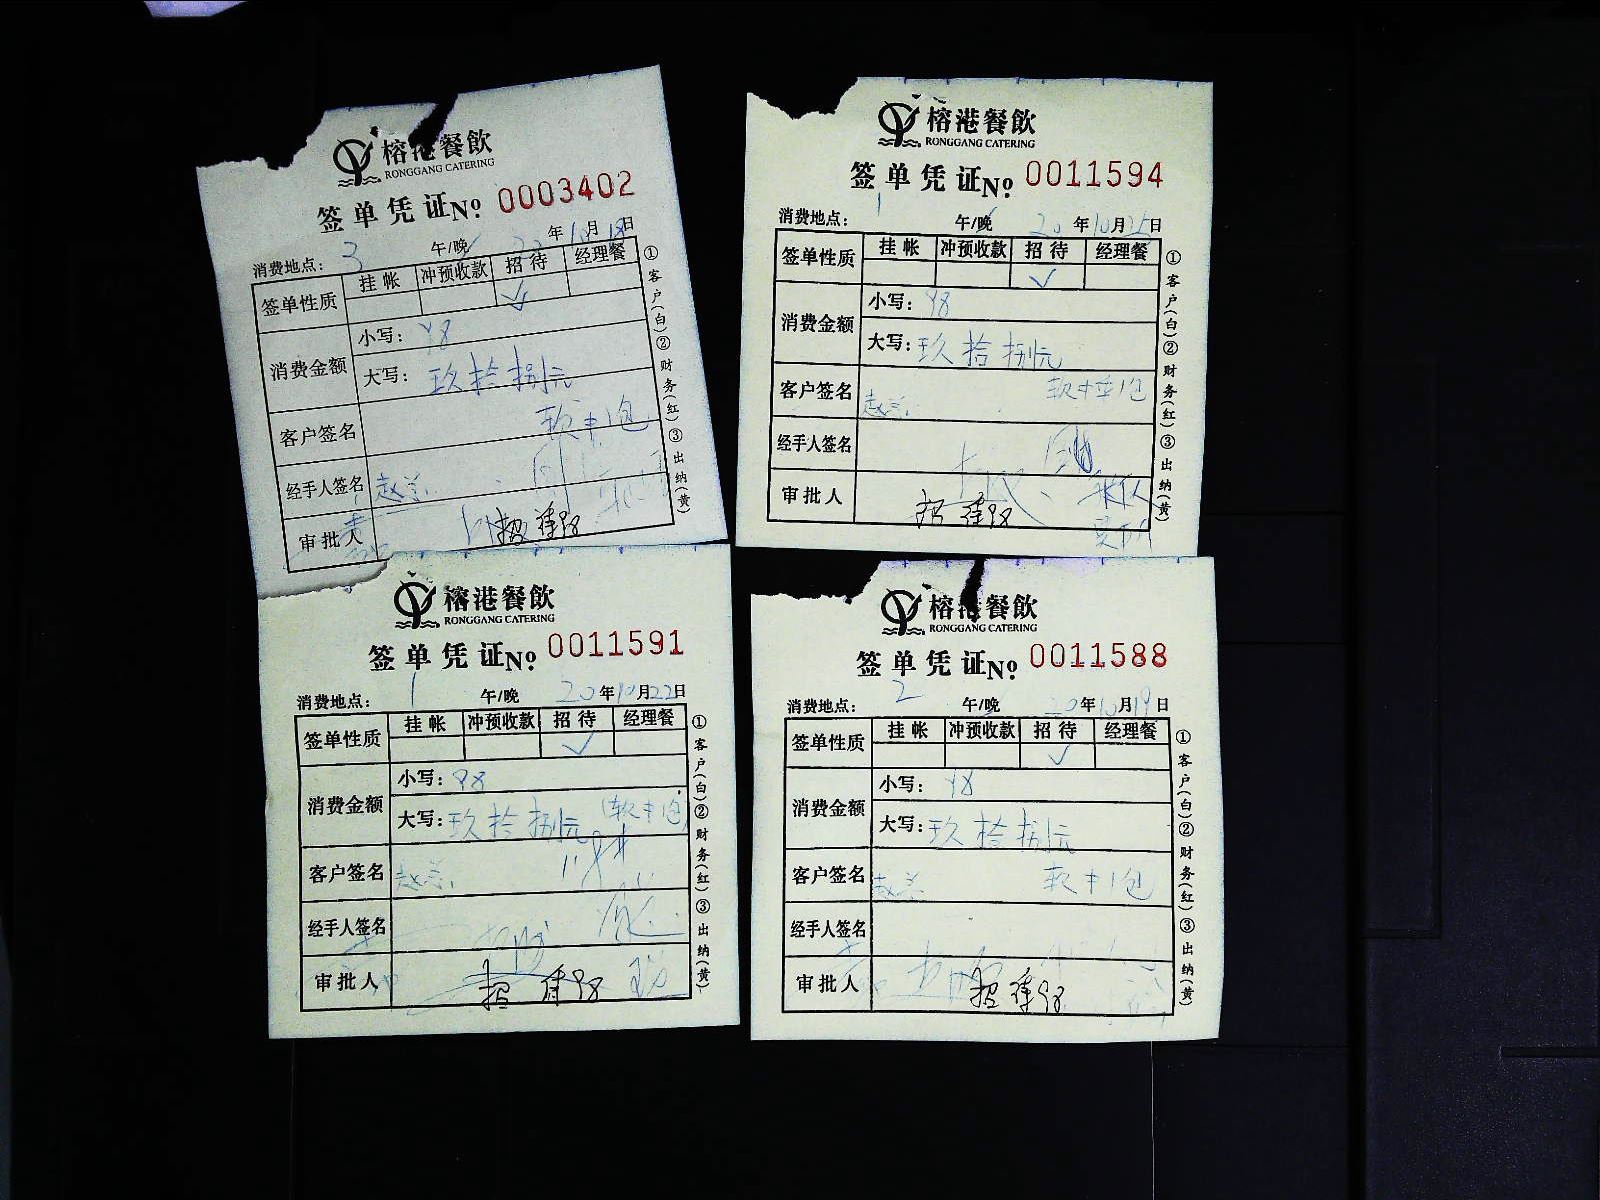 榕港餐飲
RONGGANG CATERING
签单凭证№ 0003402
消费地点: 3 午/晚 20年10月18日
签单性质 挂帐 冲预收款 招待 经理餐
✓
消费金额 小写: 98
大写: 玖拾捌元
客户签名 软中1包
经手人签名 赵兰
审批人 招待98
①客户(白)②财务(红)③出纳(黄)
榕港餐飲
RONGGANG CATERING
签单凭证№ 0011594
消费地点: 1 午/晚 20年10月25日
签单性质 挂帐 冲预收款 招待 经理餐
✓
消费金额 小写: 98
大写: 玖拾捌元
客户签名 赵兰 软中1包
经手人签名
审批人 招待98
①客户(白)②财务(红)③出纳(黄)
榕港餐飲
RONGGANG CATERING
签单凭证№ 0011591
消费地点: 1 午/晚 20年10月22日
签单性质 挂帐 冲预收款 招待 经理餐
✓
消费金额 小写: 98
大写: 玖拾捌元 (软中1包)
客户签名 赵兰
经手人签名
审批人 招待98
①客户(白)②财务(红)③出纳(黄)
榕港餐飲
RONGGANG CATERING
签单凭证№ 0011588
消费地点: 2 午/晚 20年10月19日
签单性质 挂帐 冲预收款 招待 经理餐
✓
消费金额 小写: 98
大写: 玖拾捌元
客户签名 赵兰 软中1包
经手人签名
审批人 招待98
①客户(白)②财务(红)③出纳(黄)